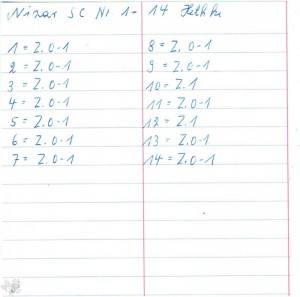 Nizar SC Nr 1-14 Hethke
1 = Z. 0-1
2 = Z. 0-1
3 = Z. 0-1
4 = Z. 0-1
5 = Z. 0-1
6 = Z. 0-1
7 = Z. 0-1
8 = Z. 0-1
9 = Z. 0-1
10 = Z. 1
11 = Z. 0-1
12 = Z. 1
13 = Z. 0-1
14 = Z. 0-1